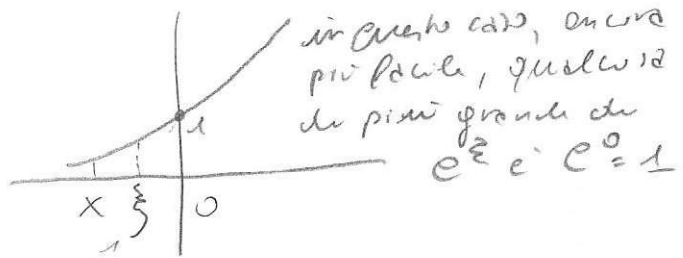 in questo caso, ancora
più facile, qualcosa
di più grande di
e^ξ è e^0 = 1
1
x ξ 0